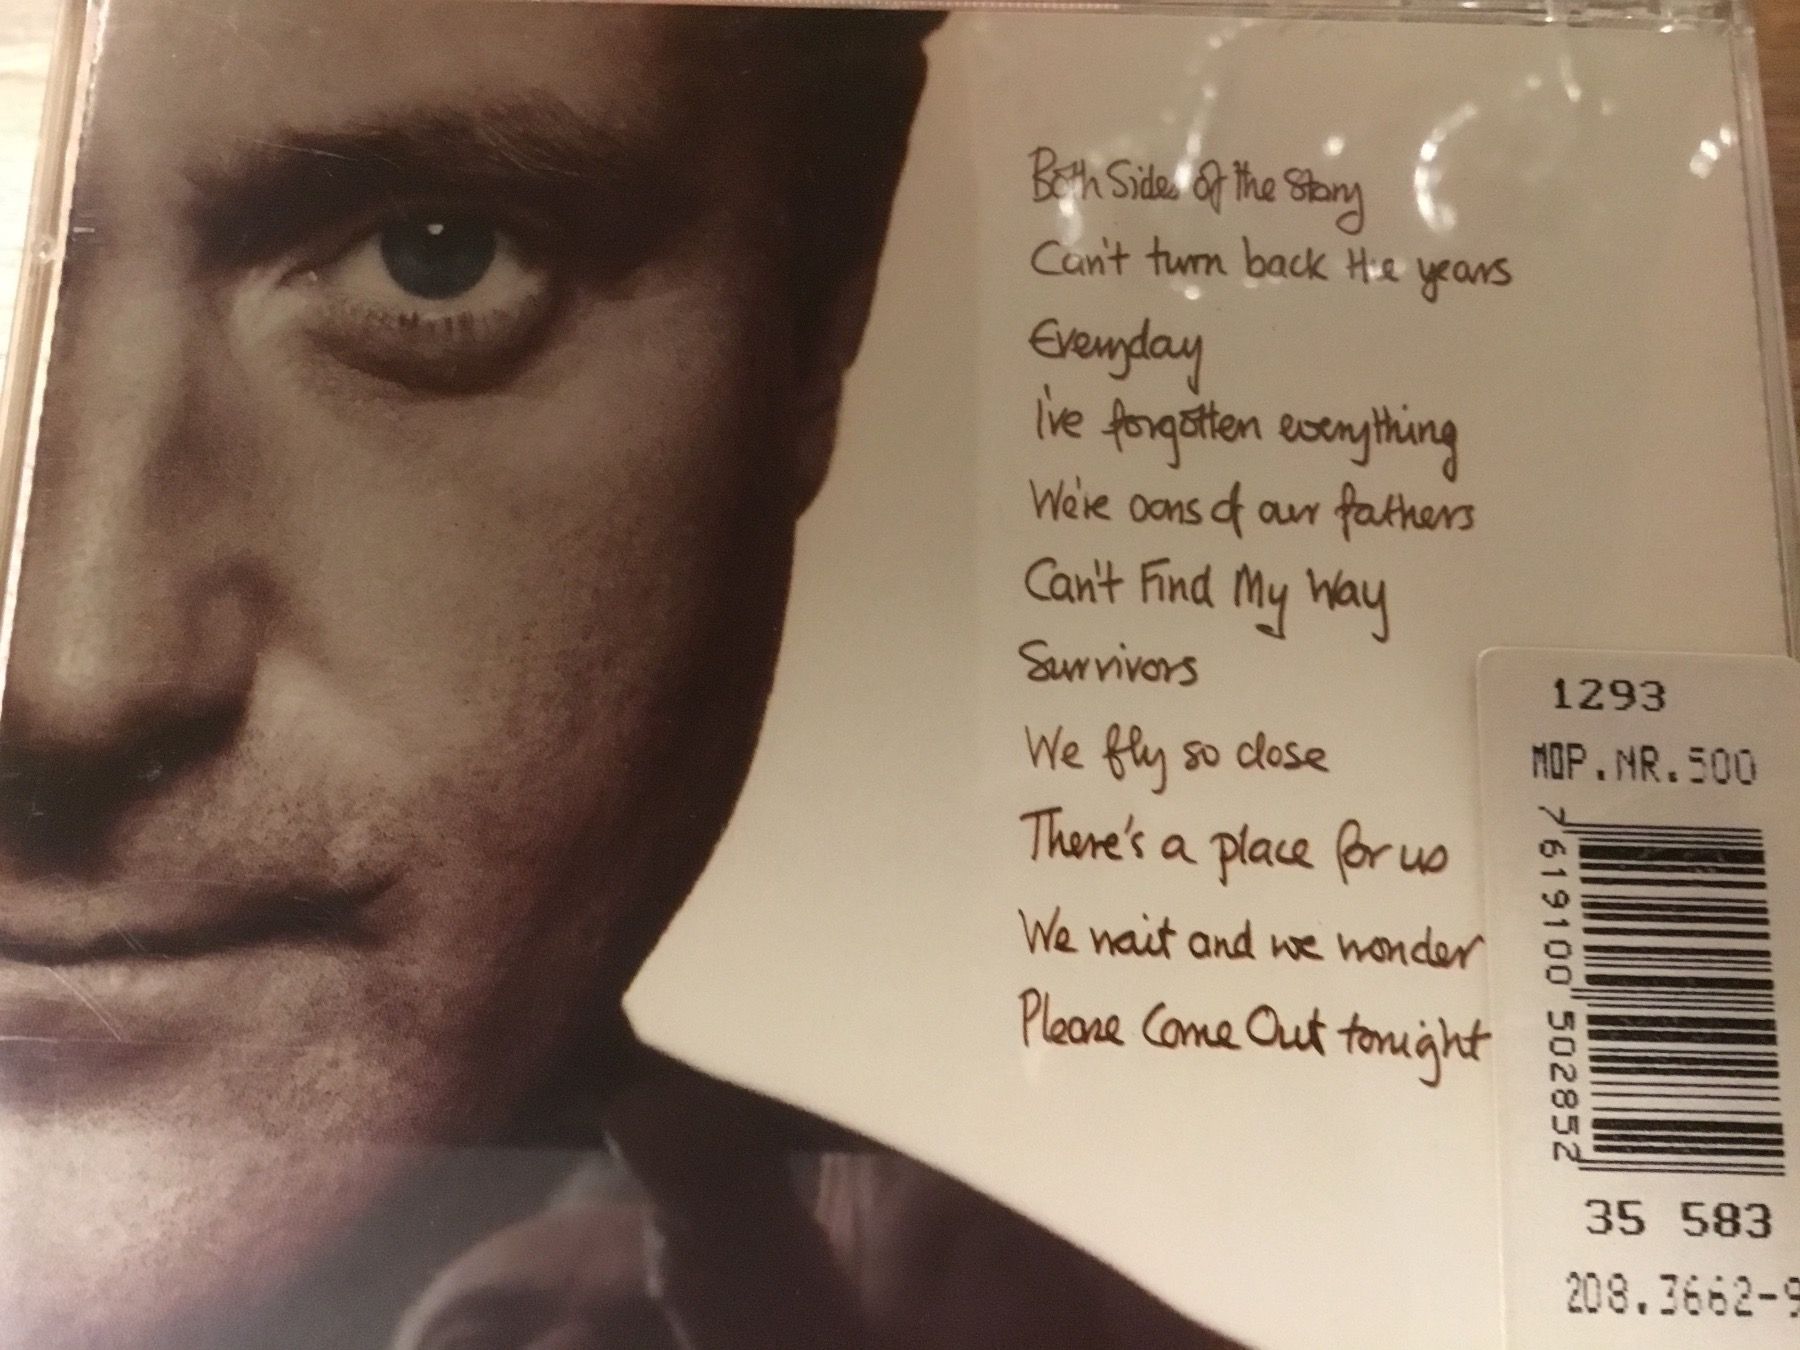 Both Sides Of the Story
Can't turn back the years
Everyday
I've forgotten everything
We're sons of our fathers
Can't Find My Way
Survivors
We fly so close
There's a place for us
We wait and we wonder
Please Come Out tonight
1293
MOP.NR.500
7 619100 502852
35 583
208.3662-9